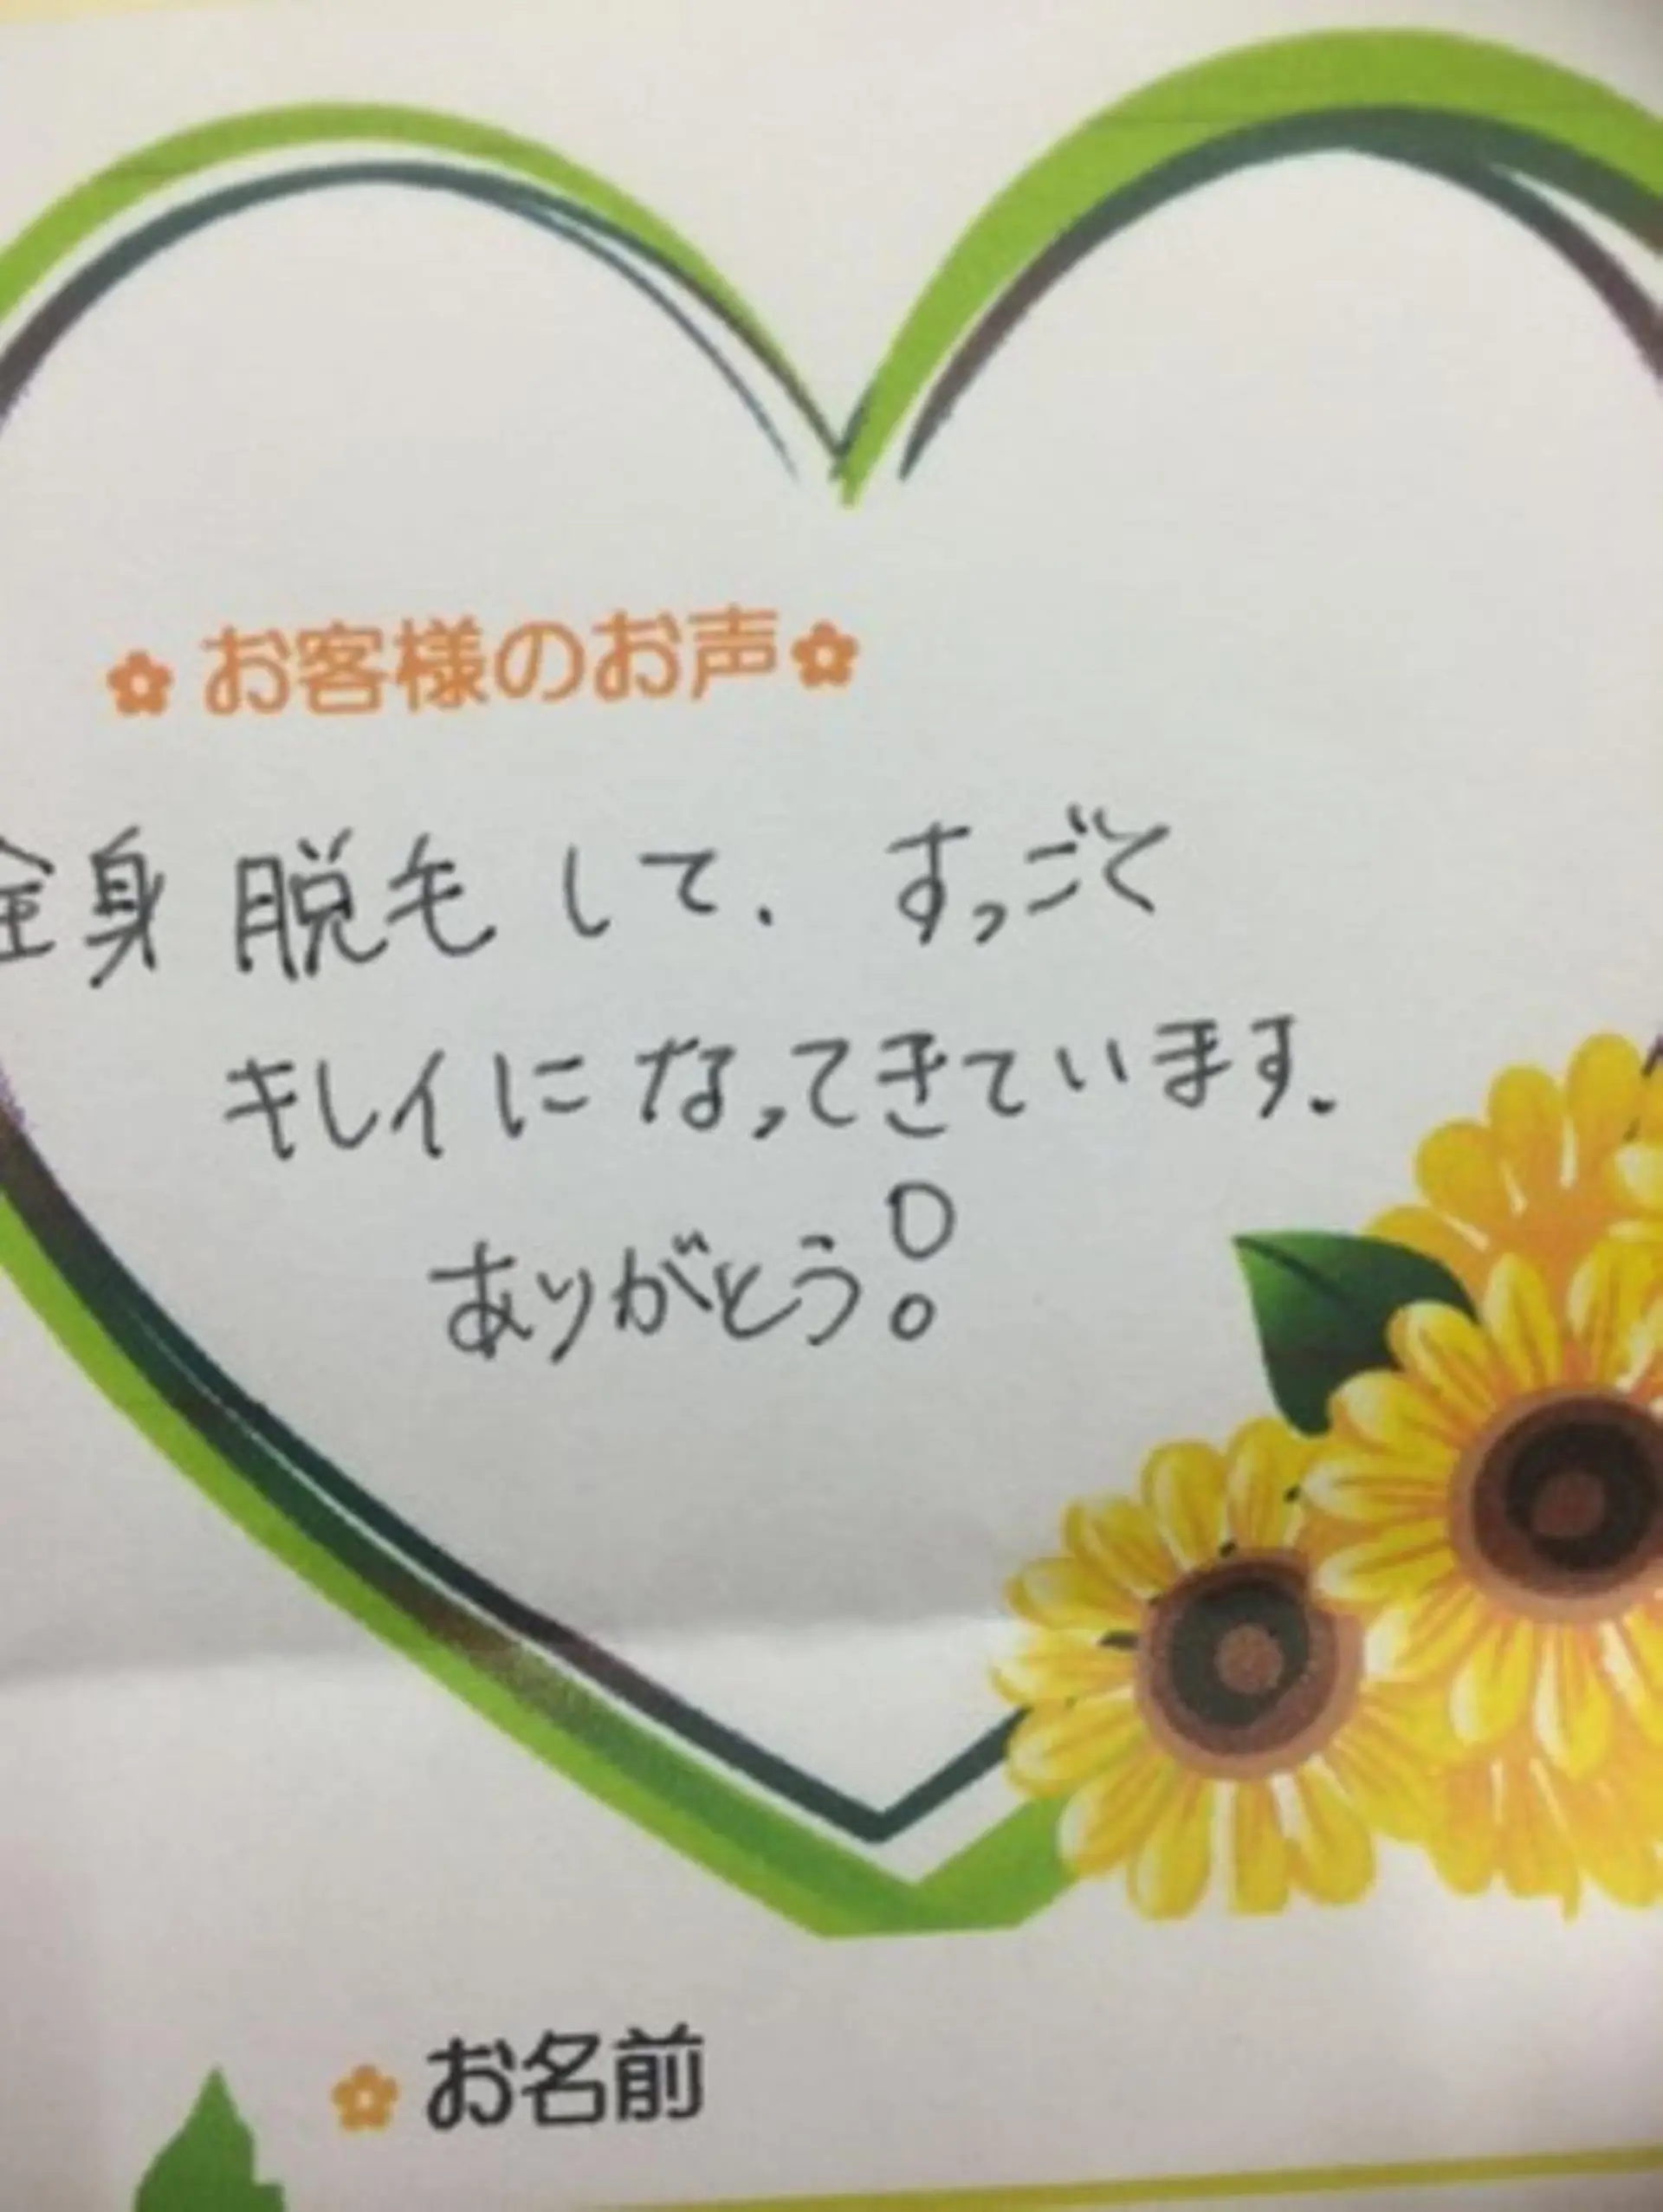 お客様のお声
全身脱毛して、すっごく
キレイになってきています。
ありがとう!
お名前